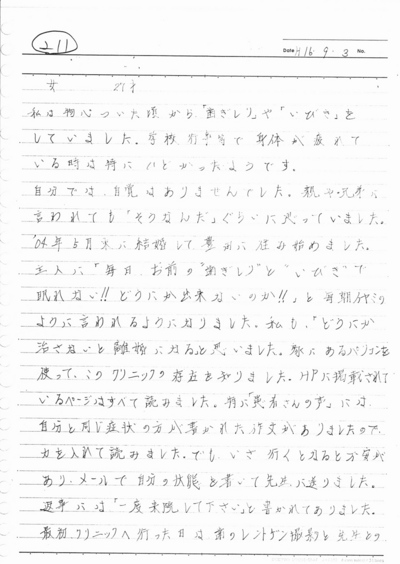 211
Date H16・9・3 No.
女 21才
私は物心ついた頃から「歯ぎしり」や「いびき」を
していました。学校行事等で身体が疲れて
いる時は特にひどかったようです。
自分では自覚はありませんでした。親や兄弟に
言われても「そうなんだ」ぐらいに思っていました。
'04年5月末に結婚して豊田に住み始めました。
主人に「毎日、お前の"歯ぎしり"と"いびき"で
眠れない!!どうにか出来ないのか!!」と毎朝
ように言われるようになりました。私も、「どうにか
治さないと離婚になる」と思いました。家にあるパソコンを
使って、このクリニックの存在を知りました。HPに掲載されて
いるページはすべて読みました。特に「患者さんの声」には、
自分と同じ症状の方が書かれた作文がありましたので、
力を入れて読みました。でも、いざ行くとなると不安が
あり、メールで自分の状態を書いて先生に送りました。
返事には「一度来院して下さい」と書かれてありました。
最初クリニックへ行った日は歯のレントゲン撮影と先生との